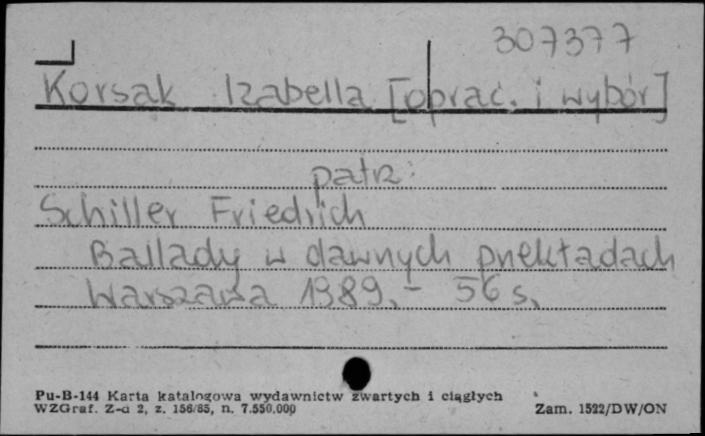 307377
Korsak Izabella [oprac. i wybór]
patrz:
Schiller Friedrich
Ballady w dawnych przekładach
Warszawa 1989. - 56 s.
Pu-B-144 Karta katalogowa wydawnictw zwartych i ciągłych
WZGraf. Z-d 2, z. 156/85, n. 7.550.000
Zam. 1522/DW/ON